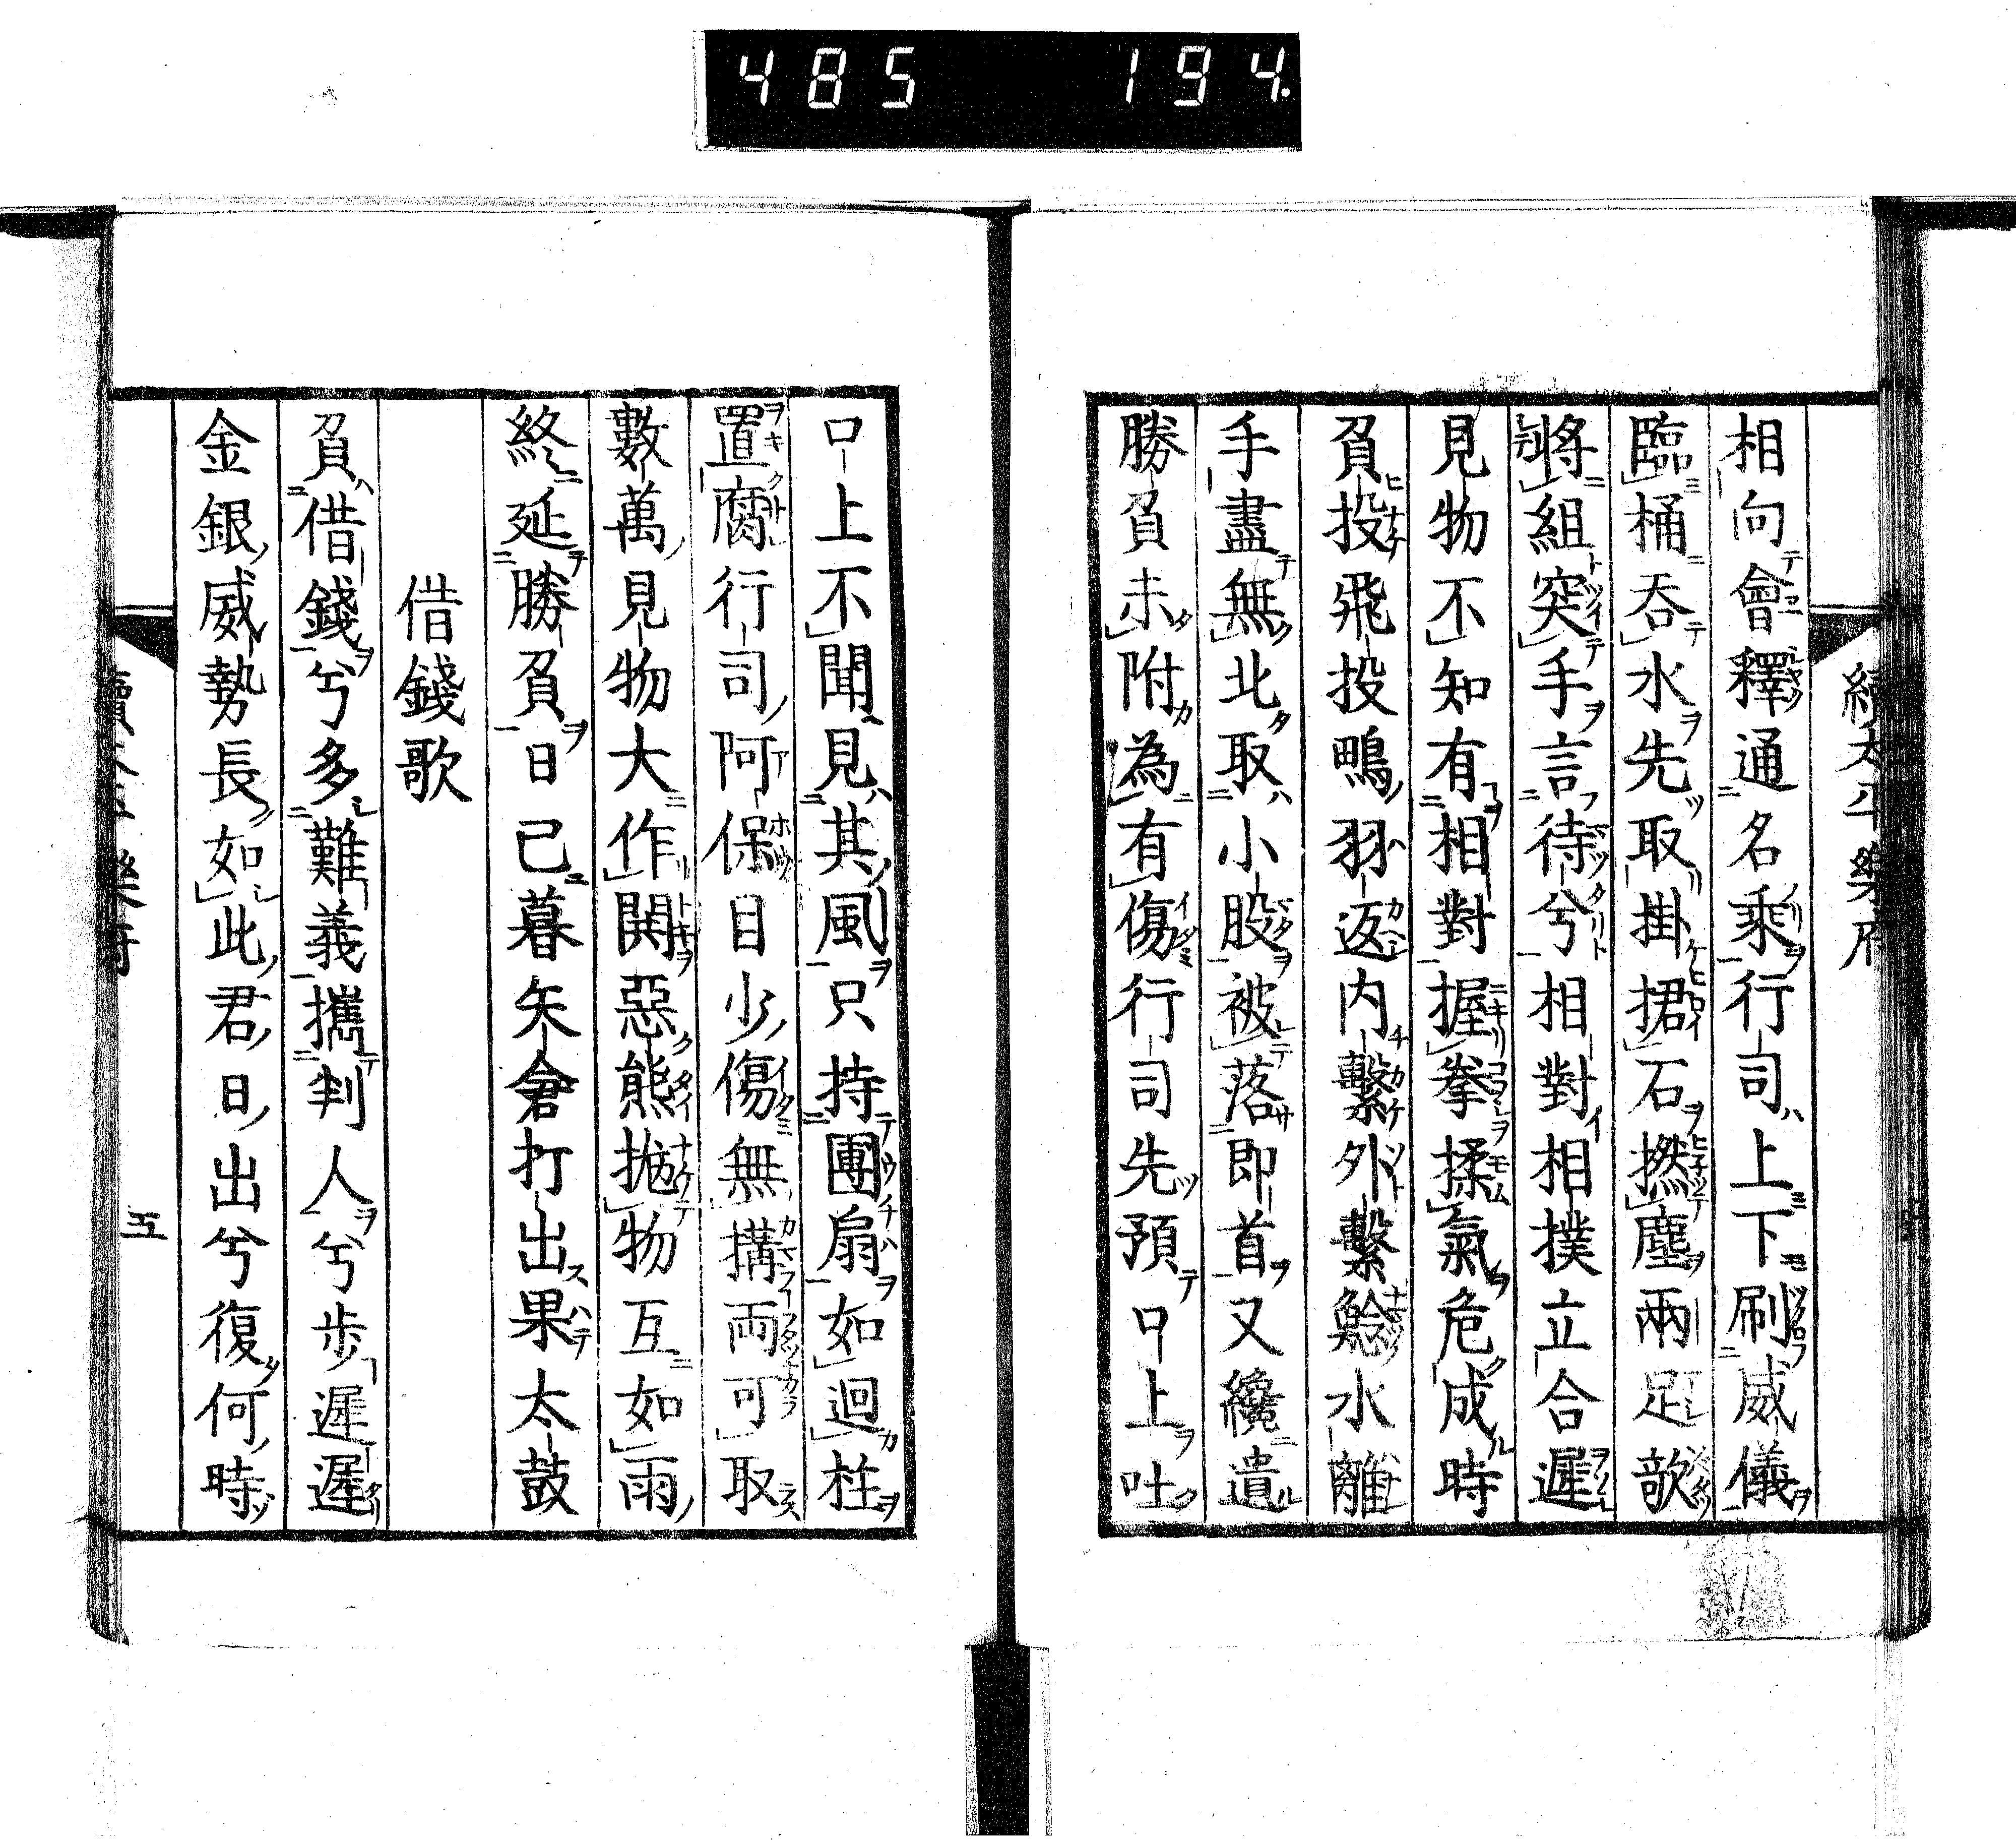 485 194.
續太平樂府
相向會釋通名乘行司上下刷威儀
臨桶吞水先取掛捃石撚塵兩足歕
將組突手言待兮相對相撲立合遲
見物不知有相對握拳揉氣危成時
負投飛投鴨羽返内繫外繫鯰水離
手盡無北取小股被落即首又纔遺
勝負未附為有傷行司先預口上吐
口上不聞見其風只持團扇如迴柱
置腐行司阿保目少傷無搆両可取
數萬見物大作閧惡熊拋物互如雨
終延勝負日已暮矢倉打出果太鼓
借錢歌
負借錢兮多難義攜判人兮步遲遲
金銀威勢長如此君日出兮復何時
五